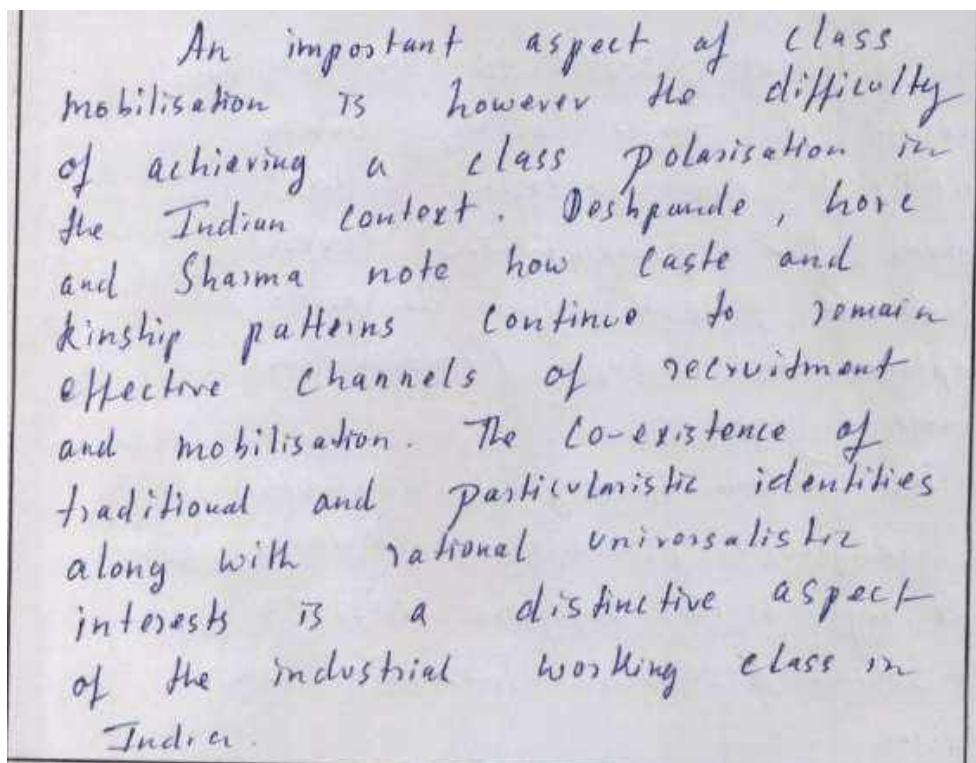 An important aspect of class
mobilisation is however the difficulty
of achieving a class polarisation in
the Indian context. Deshpande, hore
and Sharma note how caste and
kinship patterns continue to remain
effective channels of recruitment
and mobilisation. The co-existence of
traditional and particularistic identities
along with rational universalistic
interests is a distinctive aspect
of the industrial working class in
India.